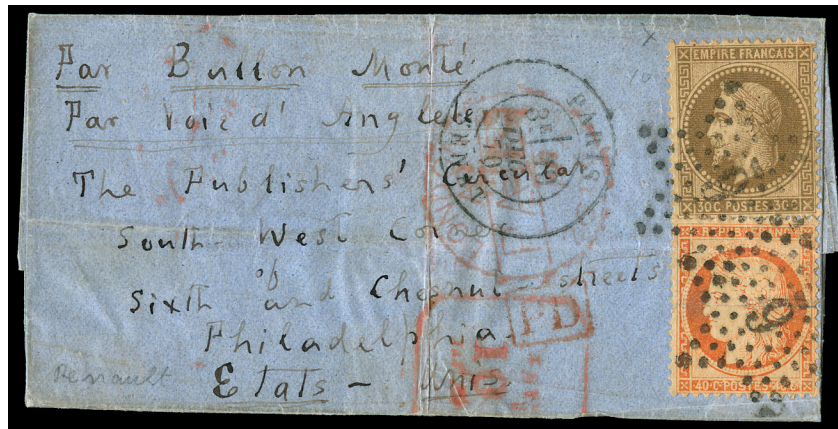 Par Ballon Monté
Par Voie d' Angleter
The Publishers' Circular
South West Corner
of
Sixth and Chesnut streets
Philadelphia
Etats - Unis
EMPIRE FRANÇAIS
30C POSTES 30C
40C POSTES 40C
PARIS
PD